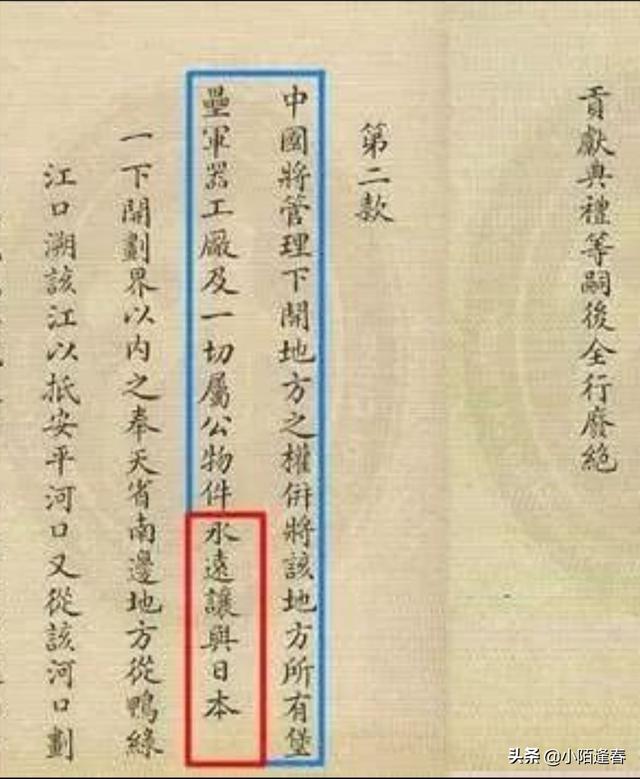 貢獻典禮等嗣後全行廢絕
第二款
中國將管理下開地方之權併將該地方所有堡
壘軍器工廠及一切屬公物件永遠讓與日本
一下開劃界以內之奉天省南邊地方從鴨綠
江口溯該江以抵安平河口又從該河口劃
头条 @小陌逢春